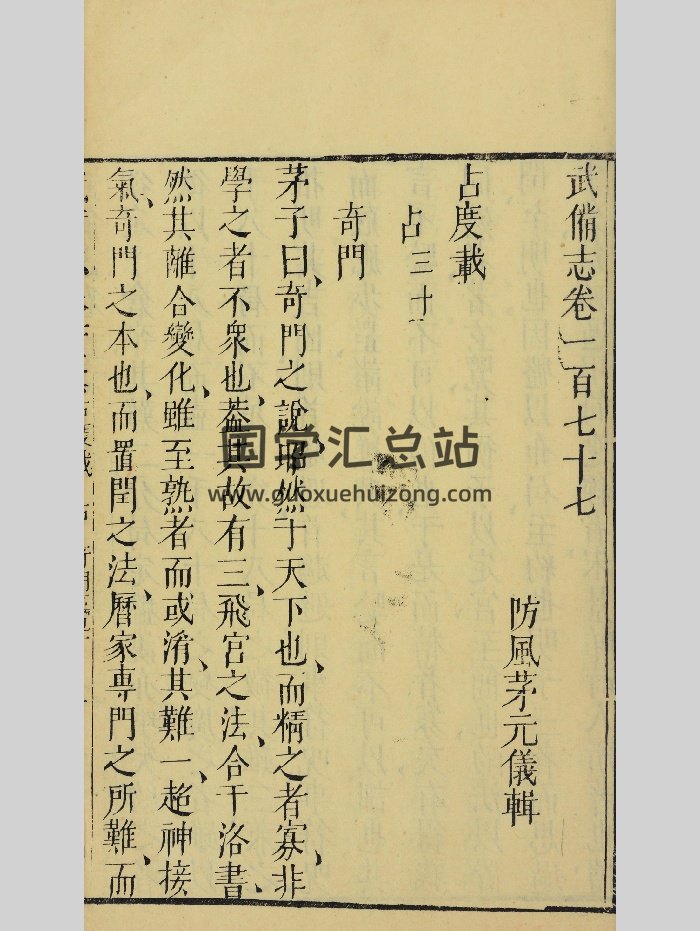 武備志卷一百七十七
防風茅元儀輯
占度載
占三十
奇門
茅子曰、奇門之說昭然于天下也、而精之者寡、非
學之者不衆也、葢其故有三飛宮之法、合于洛書、
然其離合變化、雖至熟者而或淆、其難一、超神接
氣、奇門之本也、而置閏之法、曆家專門之所難、而
国学汇总站
www.guoxuehuizong.com